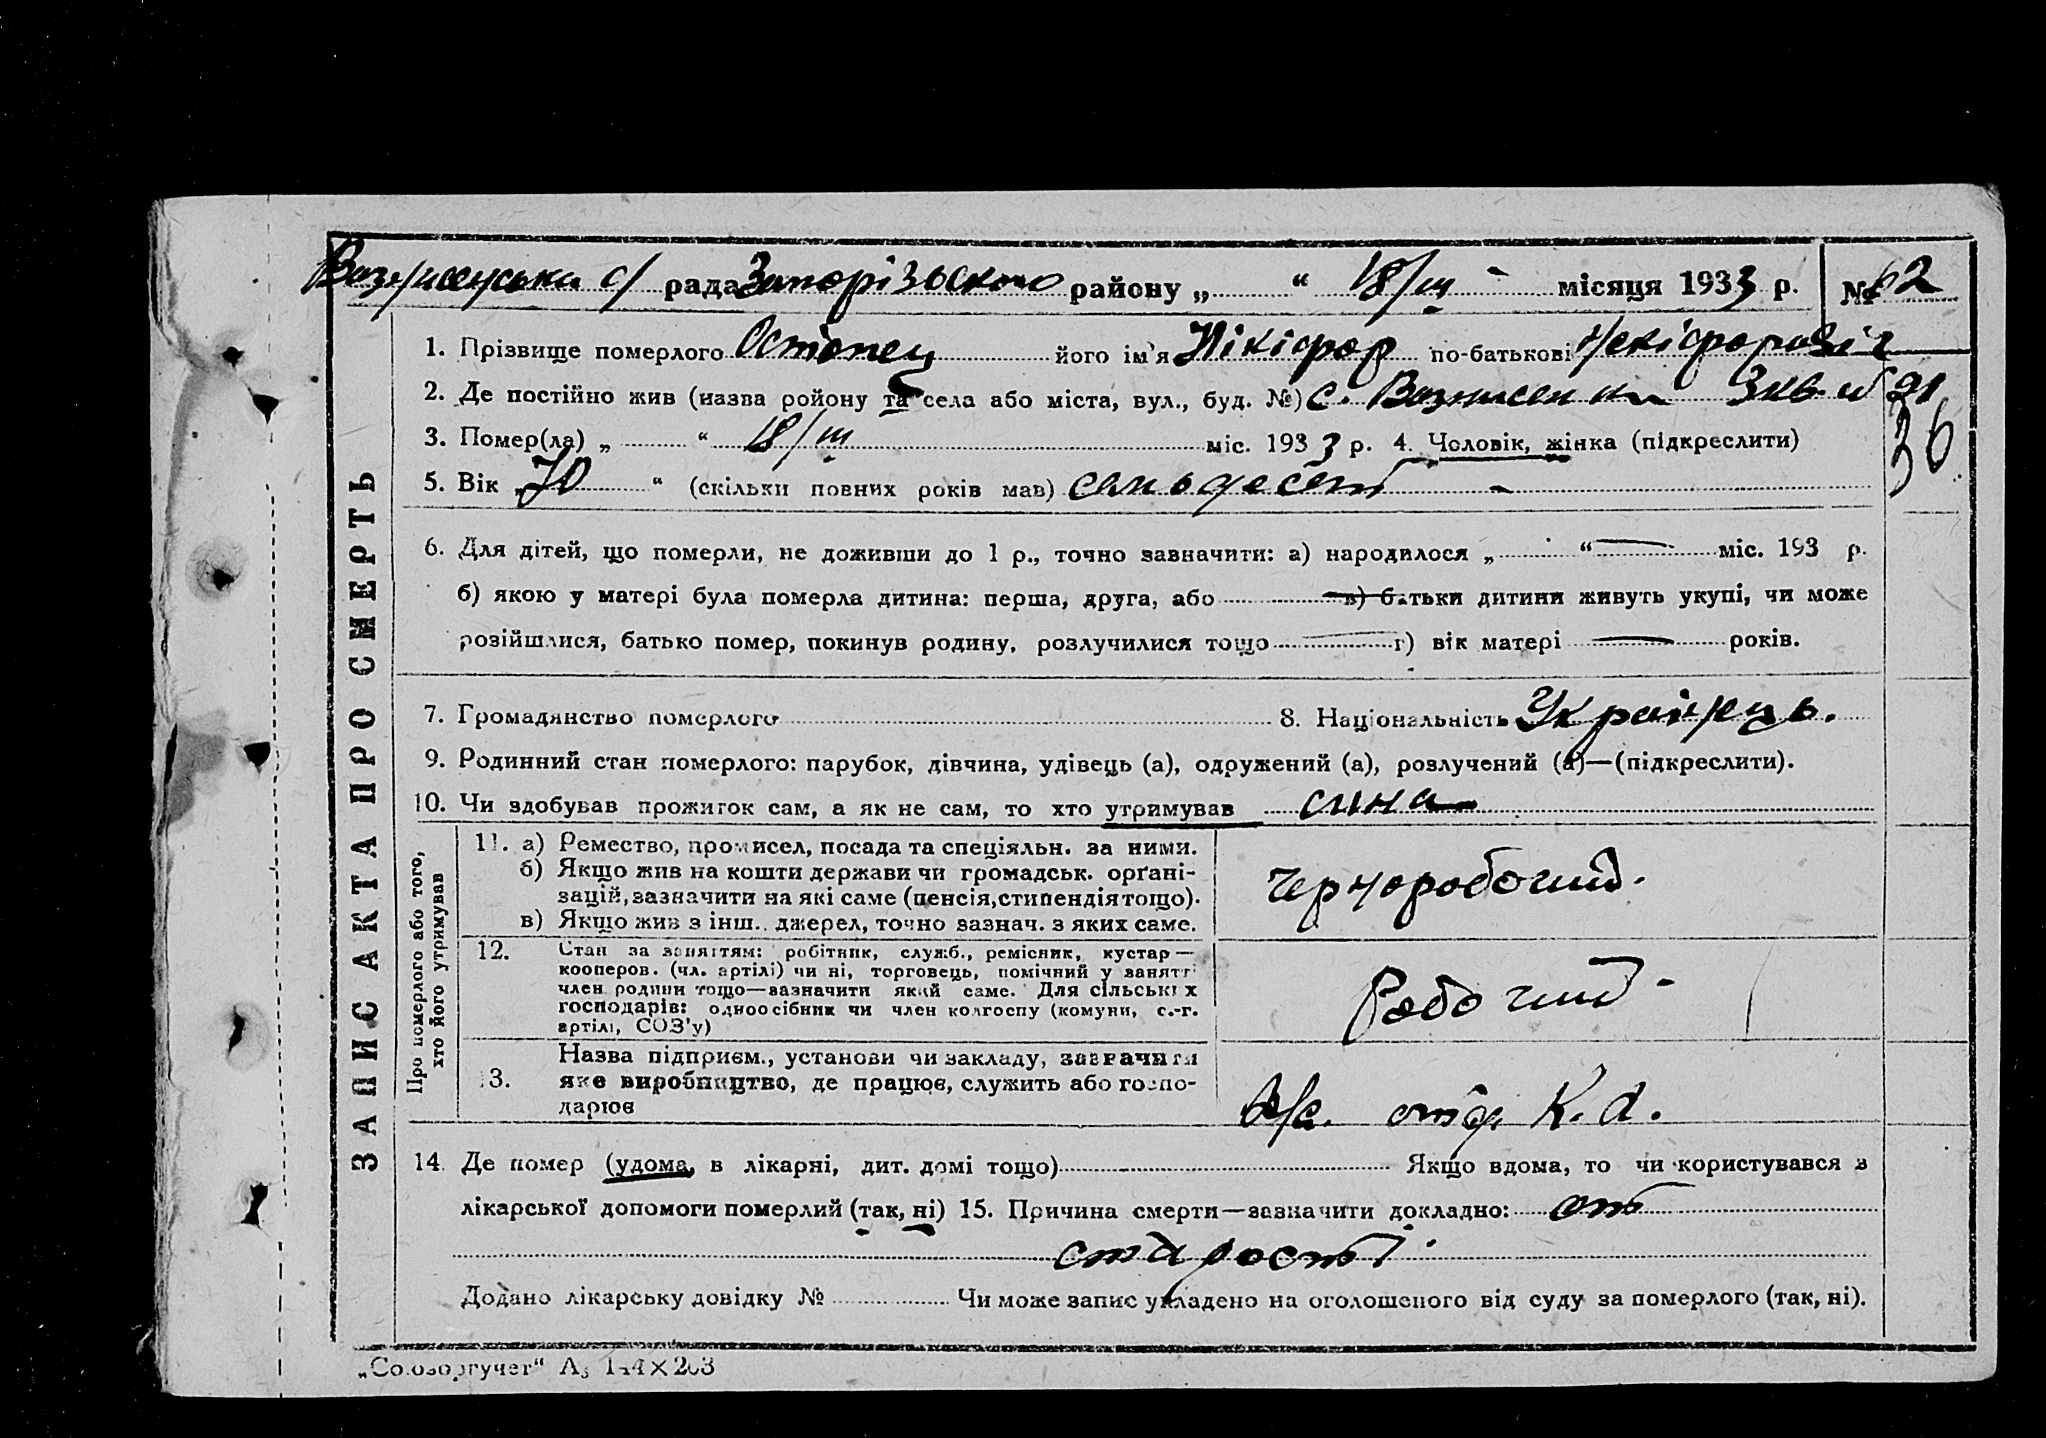 Вознисенська с/ рада Запорізького району „ “ 18/III місяця 1933 р. № 62
1. Прізвище померлого Остопец його ім'я Нікіфор по-батькові Некіфоровіч
2. Де постійно жив (назва ройону та села або міста, вул., буд. №) с. Вознисенки 3 кв. № 91
3. Помер(ла) „ “ 18/III міс. 1933 р. 4. Чоловік, жінка (підкреслити) 36
5. Вік „ 70 “ (скільки повних років мав) семьдесят
6. Для дітей, що померли, не доживши до 1 р., точно зазначити: а) народилося „ “ — міс. 193 р.
б) якою у матері була померла дитина: перша, друга, або — в) батьки дитини живуть укупі, чи може
розійшлися, батько помер, покинув родину, розлучилися тощо — г) вік матері — років.
7. Громадянство померлого 8. Національність Українець.
9. Родинний стан померлого: парубок, дівчина, удівець (а), одружений (а), розлучений (а)—(підкреслити).
10. Чи здобував прожиток сам, а як не сам, то хто утримував сина
ЗАПИС АКТА ПРО СМЕРТЬ
Про померлого або того,
хто його утримував
11. а) Ремество, промисел, посада та спеціяльн. за ними.
б) Якщо жив на кошти держави чи громадськ. орґані-
зацій, зазначити на які саме (пенсія, стипендія тощо).
в) Якщо жив з інш. джерел, точно зазнач. з яких саме.
Черноробочий.
12. Стан за заняттям: робітник, служб., ремісник, кустар—
кооперов. (чл. артілі) чи ні, торговець, помічний у занятті
член родини тощо—зазначити який саме. Для сільських
господарів: одноосібник чи член колгоспу (комуни, с.-г.
артілі, СОЗ'у)
Робочий
Назва підприєм., установи чи закладу, зазначити
13. яке виробництво, де працює, служить або госпо-
дарює
К. д.
14. Де помер (удома, в лікарні, дит. домі тощо) Якщо вдома, то чи користувався з
лікарської допомоги померлий (так, ні) 15. Причина смерти—зазначити докладно: от
старості
Додано лікарську довідку № Чи може запис укладено на оголошеного від суду за померлого (так, ні).
„Союзоргучет“ А5 144×203